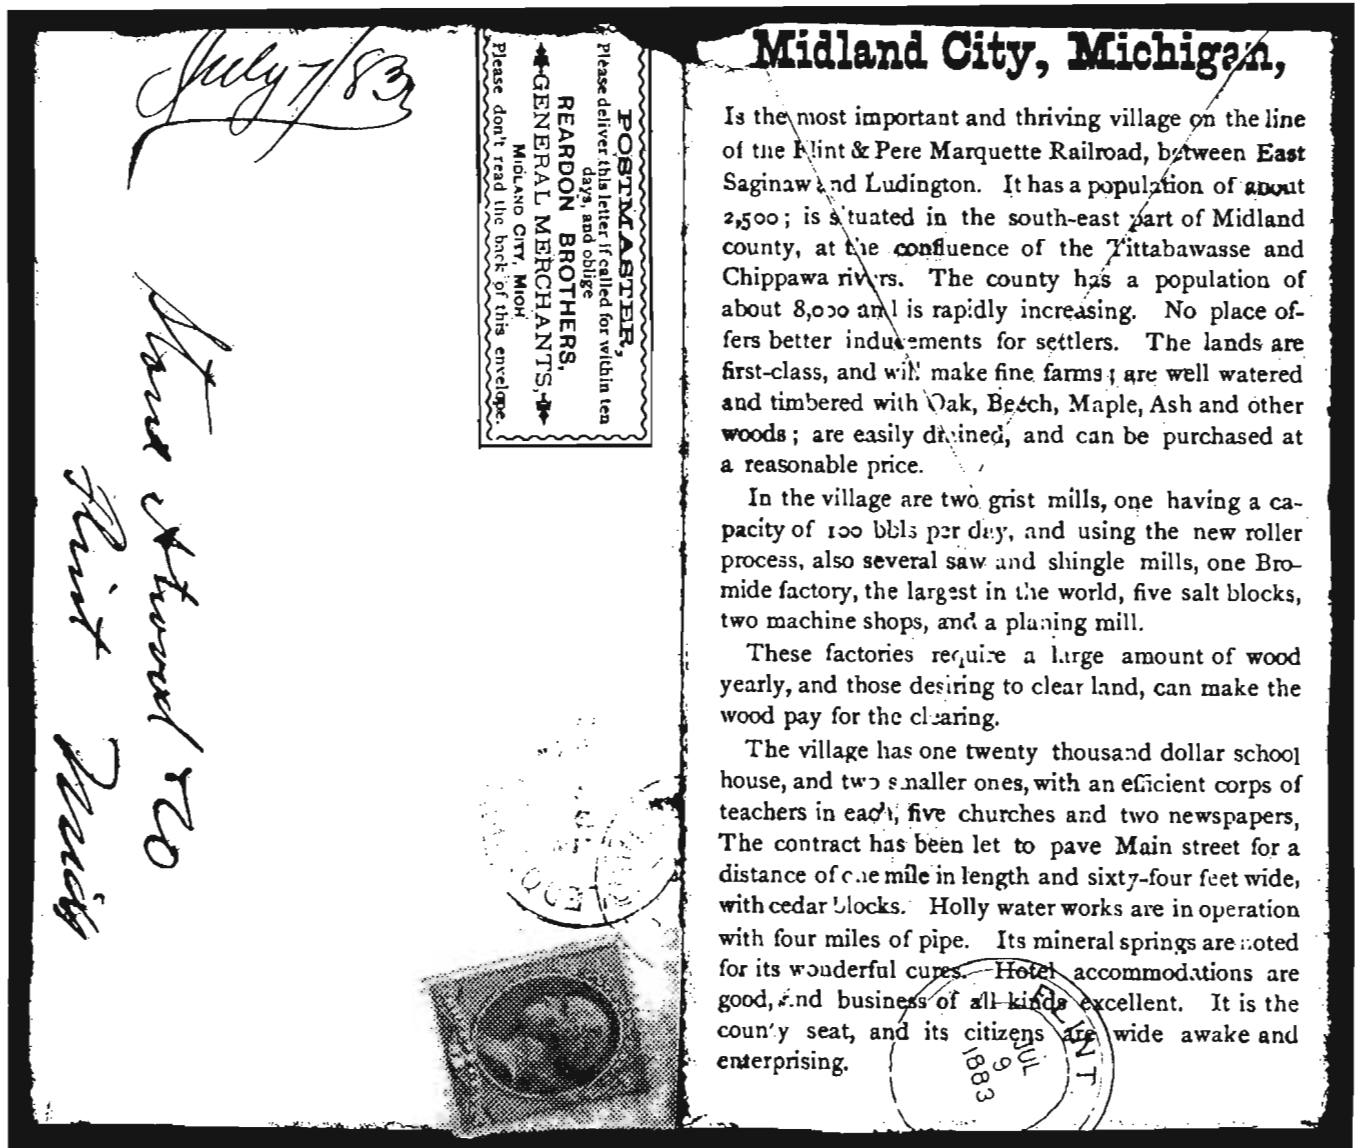 July 7/83
POSTMASTER,
Please deliver this letter if called for within ten
days, and oblige
REARDON BROTHERS,
GENERAL MERCHANTS,
MIDLAND CITY, MICH
Please don't read the back of this envelope.
Flint
Mich
Midland City, Michigan,
Is the most important and thriving village on the line
of the Flint & Pere Marquette Railroad, between East
Saginaw and Ludington. It has a population of about
2,500; is situated in the south-east part of Midland
county, at the confluence of the Tittabawasse and
Chippawa rivers. The county has a population of
about 8,000 and is rapidly increasing. No place of-
fers better inducements for settlers. The lands are
first-class, and will make fine farms; are well watered
and timbered with Oak, Beech, Maple, Ash and other
woods; are easily drained, and can be purchased at
a reasonable price.
In the village are two grist mills, one having a ca-
pacity of 100 bbls per day, and using the new roller
process, also several saw and shingle mills, one Bro-
mide factory, the largest in the world, five salt blocks,
two machine shops, and a planing mill.
These factories require a large amount of wood
yearly, and those desiring to clear land, can make the
wood pay for the clearing.
The village has one twenty thousand dollar school
house, and two smaller ones, with an efficient corps of
teachers in each, five churches and two newspapers,
The contract has been let to pave Main street for a
distance of one mile in length and sixty-four feet wide,
with cedar blocks. Holly water works are in operation
with four miles of pipe. Its mineral springs are noted
for its wonderful cures. Hotel accommodations are
good, and business of all kinds excellent. It is the
county seat, and its citizens are wide awake and
enterprising.
FLINT
JUL
9
1883